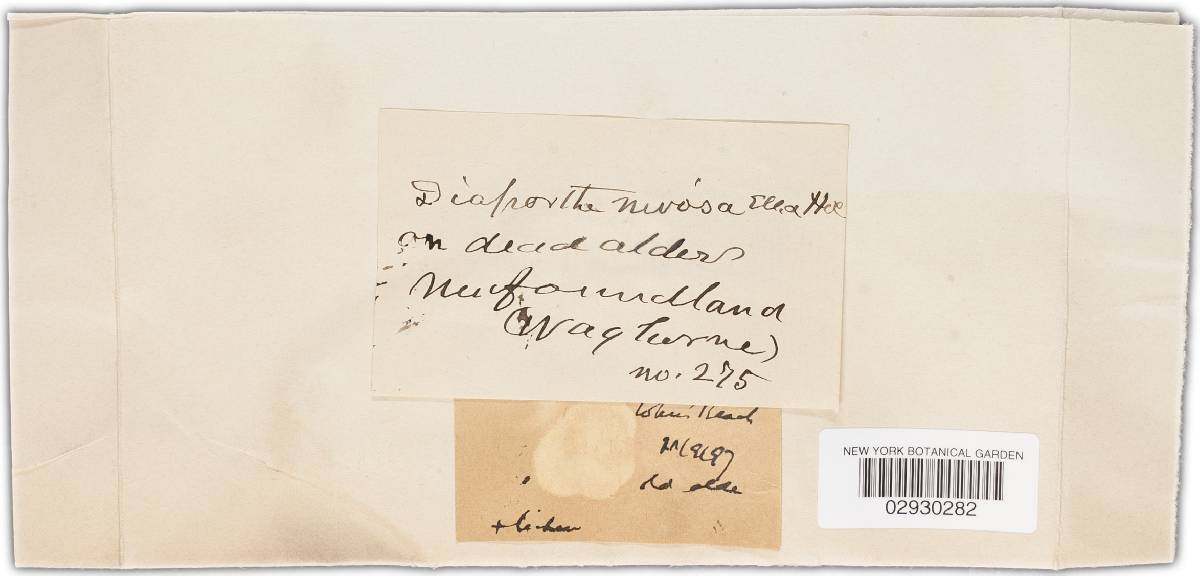 Diaporthe nivosa Ell & Hol
on dead alders
Newfoundland
(Waghorne)
no. 275
Beach
old alder
+ lichen
NEW YORK BOTANICAL GARDEN
02930282